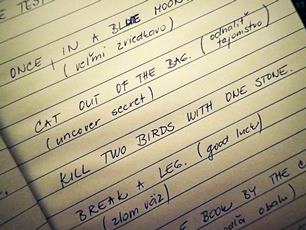 E TEST
ONCE IN A BLUE MOON
(veľmi zriedkavo)
CAT OUT OF THE BAG. (odhaliť tajomstvo)
(uncover secret)
KILL TWO BIRDS WITH ONE STONE.
BREAK A LEG. (good luck)
(zlom väz)
E BOOK BY THE C
obalu)